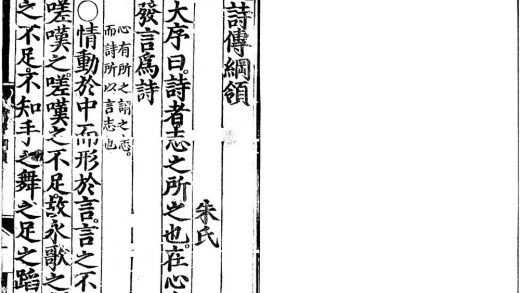 詩傳綱領
朱氏
大序曰詩者志之所之也在心
發言爲詩
心有所之謂之志
而詩所以言志也
○情動於中而形於言言之不
嗟嘆之嗟嘆之不足故永歌之
之不足不知手之舞之足之蹈